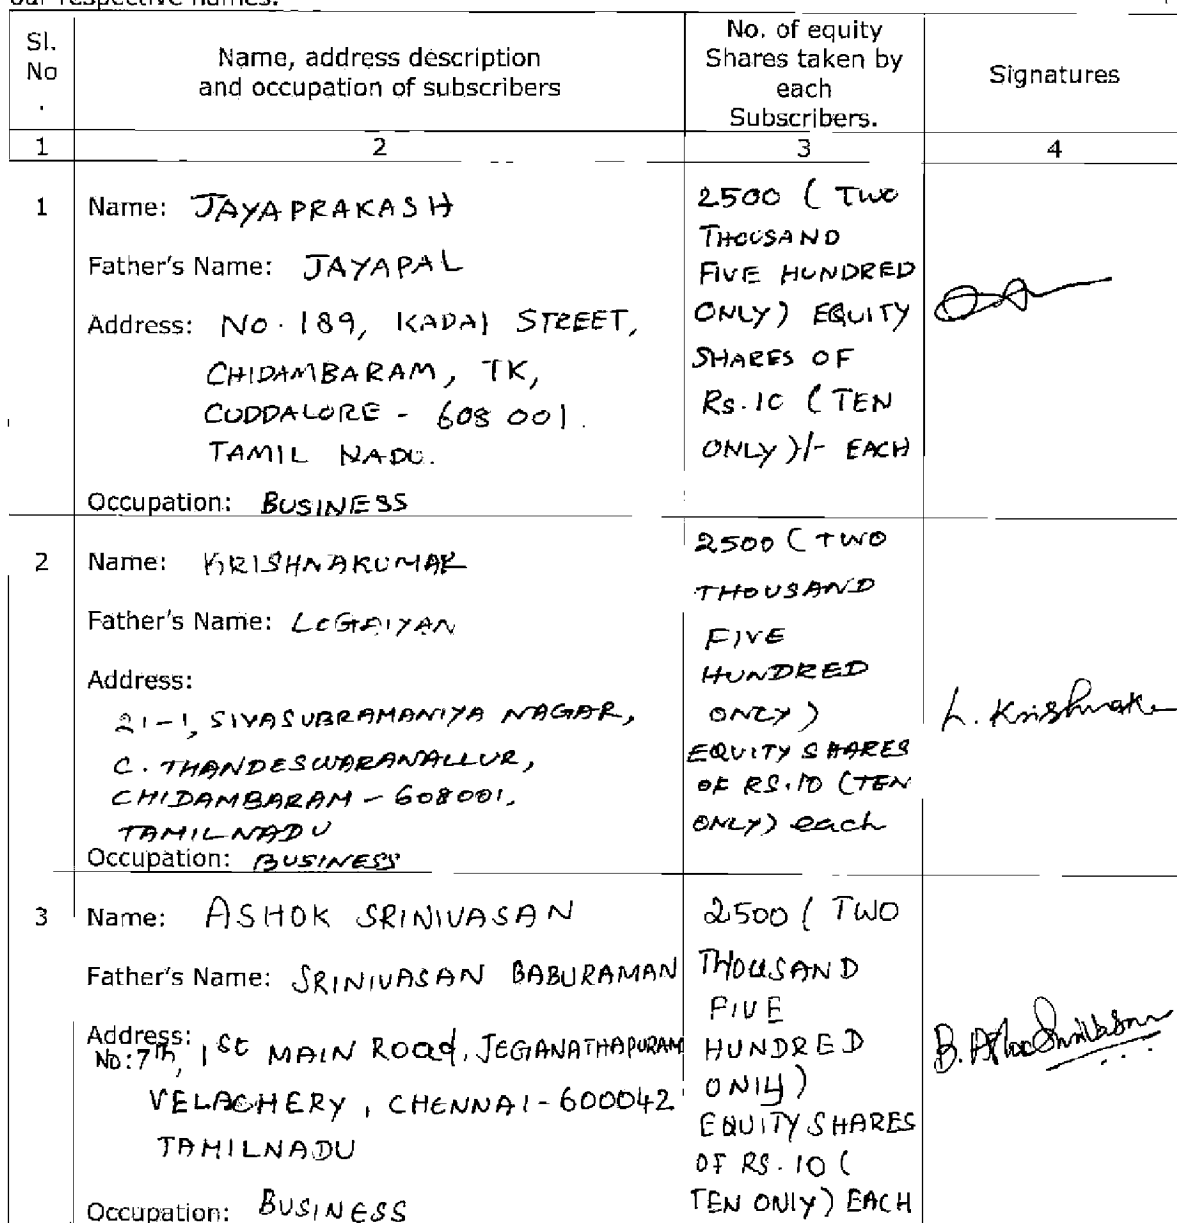 our respective names.
Sl.
No
.
Name, address description
and occupation of subscribers
No. of equity
Shares taken by
each
Subscribers.
Signatures
1
2
3
4
1
Name: JAYAPRAKASH
Father's Name: JAYAPAL
Address: No. 189, KADAI STREET,
CHIDAMBARAM, TK,
CUDDALORE - 608 001.
TAMIL NADU.
Occupation: BUSINESS
2500 ( TWO
THOUSAND
FIVE HUNDRED
ONLY) EQUITY
SHARES OF
Rs.10 (TEN
ONLY)/- EACH
2
Name: KRISHNAKUMAR
Father's Name: LOGAIYAN
Address:
21-1, SIVASUBRAMANIYA NAGAR,
C. THANDESWARANALLUR,
CHIDAMBARAM - 608001,
TAMILNADU
Occupation: BUSINESS
2500 (TWO
THOUSAND
FIVE
HUNDRED
ONLY)
EQUITY SHARES
OF RS.10 (TEN
ONLY) each
L. Krishnak
3
Name: ASHOK SRINIVASAN
Father's Name: SRINIVASAN BABURAMAN
Address:
No:7th, 1st MAIN Road, JEGANATHAPURAM
VELACHERY, CHENNAI-600042
TAMILNADU
Occupation: BUSINESS
2500 ( TWO
THOUSAND
FIVE
HUNDRED
ONLY)
EQUITY SHARES
OF RS.10 (
TEN ONLY) EACH